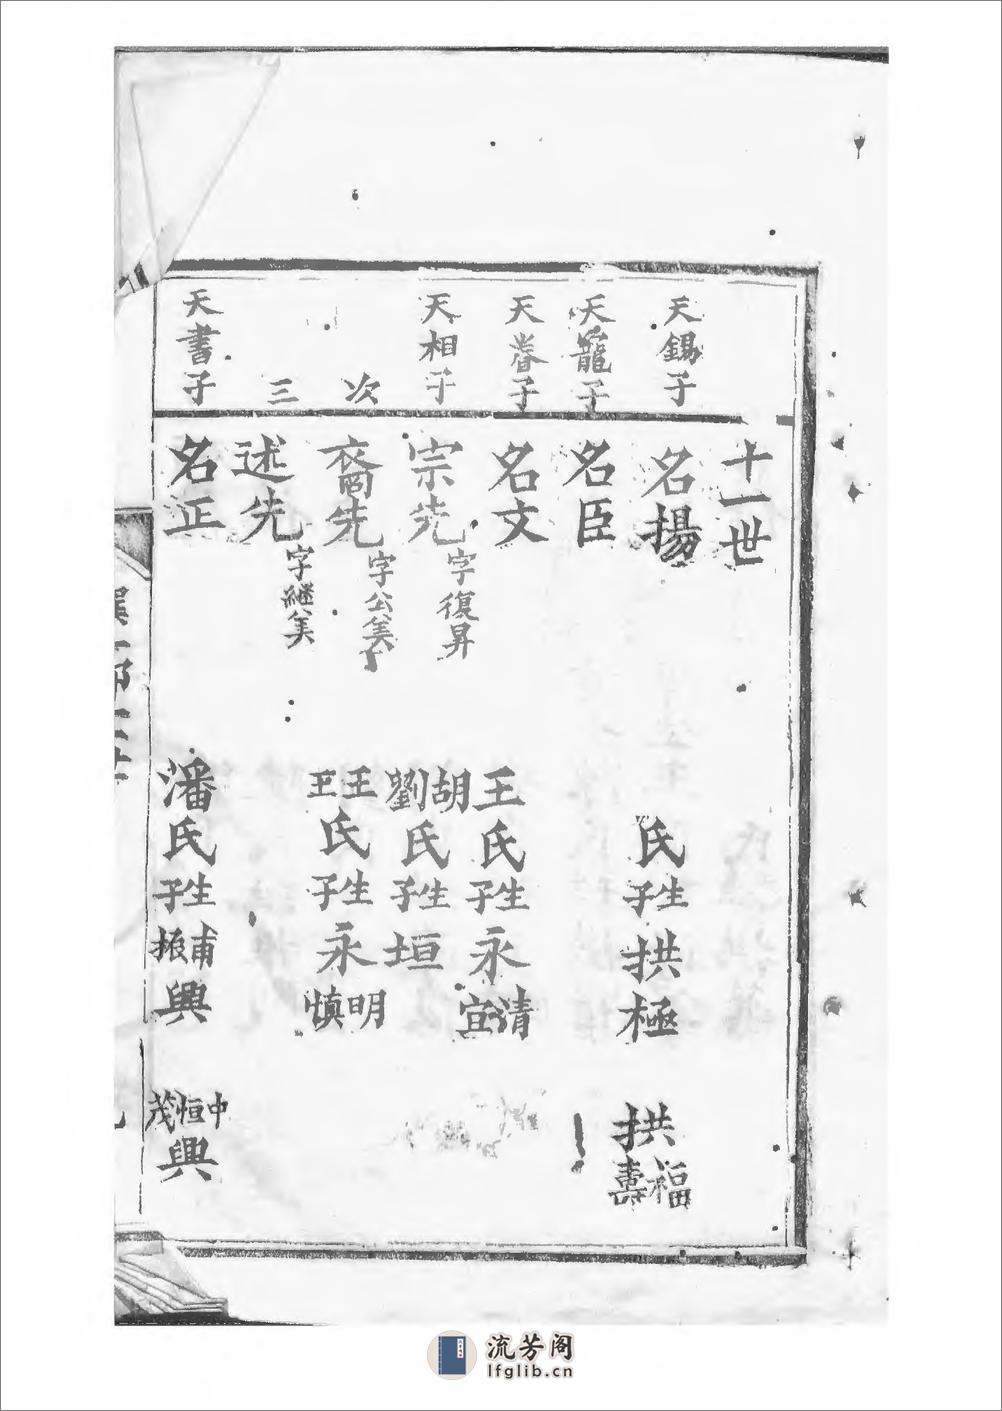 十一世
天錫子
名揚
氏生子拱極
拱福壽
天寵子
名臣
天眷子
名文
王氏生子永清宜
天相子
宗先字復昇
胡劉氏生子垣
次
裔先字公美
王王氏生子永明慎
三
述先字繼美
天書子
名正
潘氏生子甫振興
中恒茂興
流芳阁
lfglib.cn